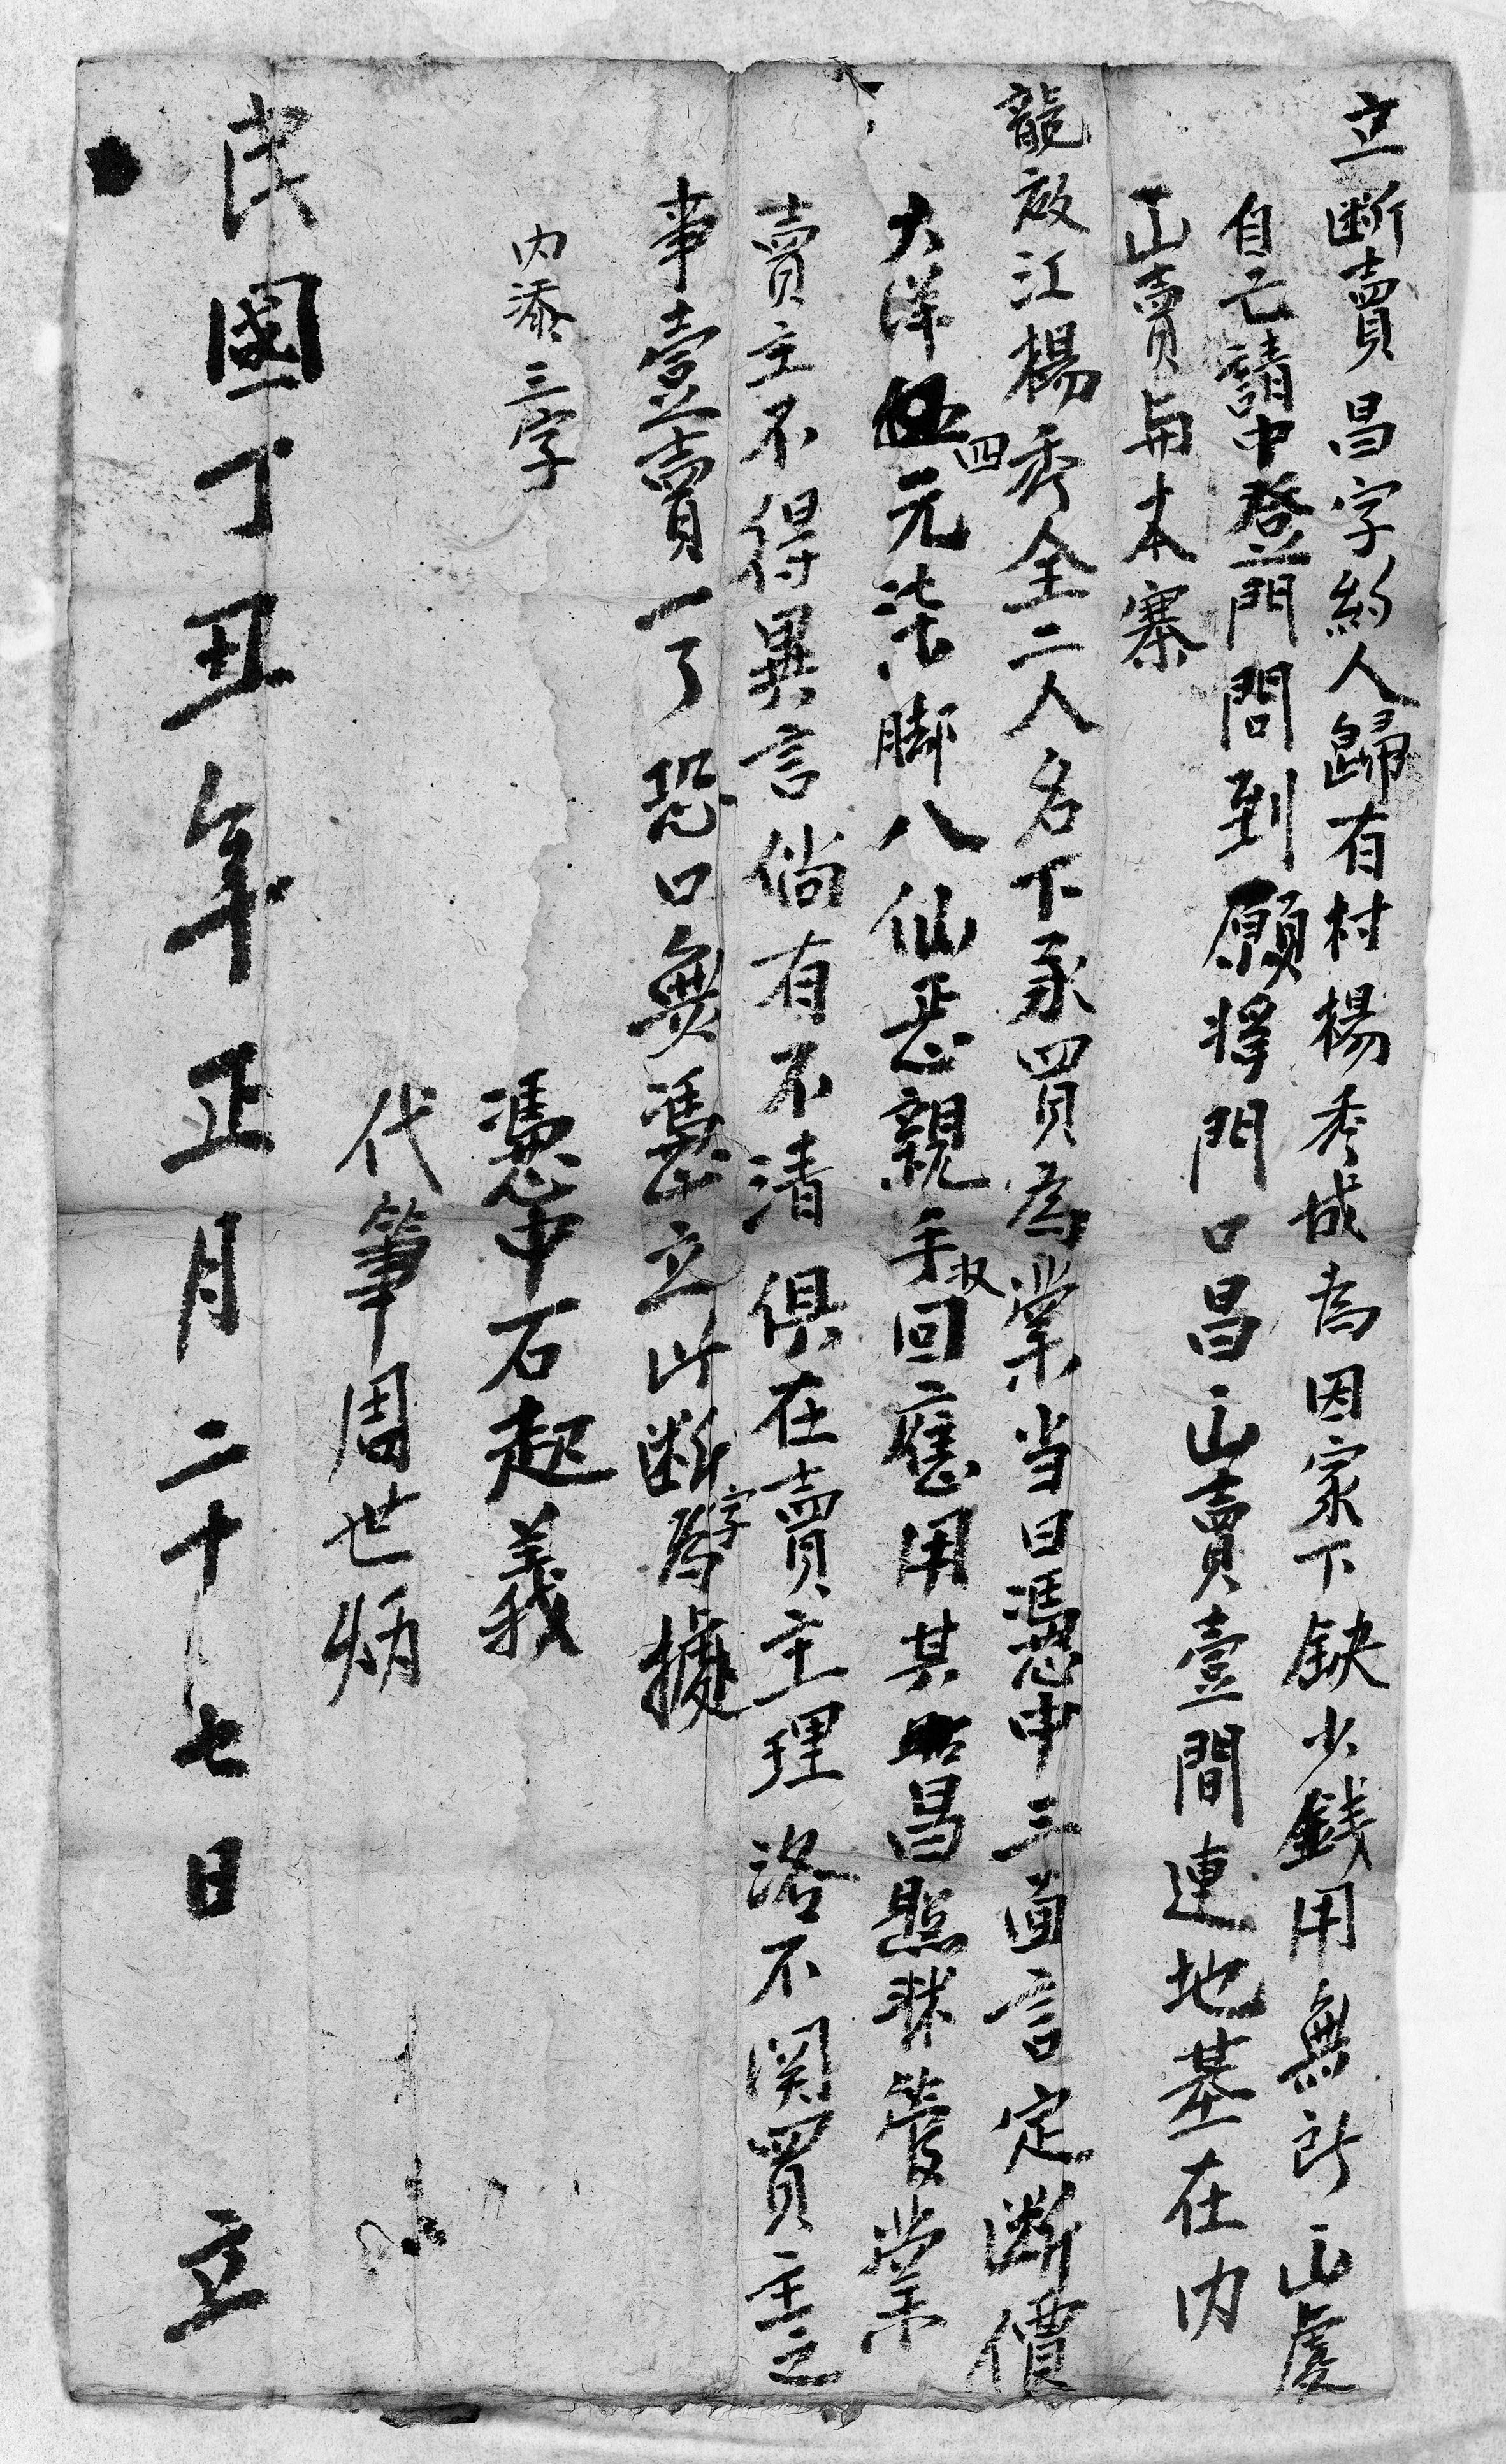 立断賣昌字約人歸有村楊秀城為因家下缺少錢用無所出處
自己請中登門問到願將門口昌山賣壹間連地基在内
出賣與本寨
龍啟江楊秀全二人名下承買為業当日憑中三面言定断價
大洋四元柒脚八仙恁親手收回應用其昌照契管業
賣主不得異言倘有不清俱在賣主理洛不関買主之
事壹賣一了恐口無憑立此断字為據
内添三字
憑中石起義
代筆周世炳
民國丁丑年正月二十七日 立